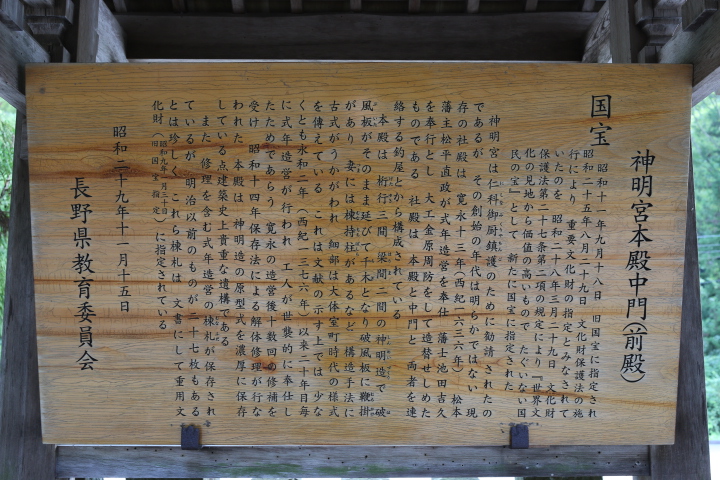 国宝 神明宮本殿中門(前殿)
昭和十一年九月十八日 旧国宝に指定され
昭和二十五年八月二十九日 文化財保護法の施
行により 重要文化財の指定とみなされて
いたのを 昭和二十八年三月二十九日 文化財
保護法第二十七条第二項の規定により「世界文
化の見地から価値の高いもので たぐいない国
民の宝」として 新たに国宝に指定された
神明宮は仁科御厨鎮護のために勧請されたの
であるが その創始の年代は明らかではない 現
存の社殿は 寛永十三年(西紀一六三六年) 松本
藩主松平直政が式年造営を奉仕し 藩士池田吉久
を奉行とし 大工金原周防をして造替せしめた
ものである 社殿は 本殿と中門と 両者を連
絡する釣屋とから構成されている
本殿は 桁行三間 梁間二間の神明造で 破
風板がそのまま延びて千木となり破風板に鞭掛
があり 妻には棟持柱があるなど 構造手法に
古式がうかがわれ 細部は大体室町時代の様式
を傳えている これは文献の示す上では 少な
くとも永和二年(西紀一三七六年)以来二十年目毎
に式年造営が行われ 工人が世襲的に奉仕し
たためであらう 寛永の造営後十数回の修補を
受け 昭和十四年保存法による解体修理が行な
われた 本殿は 神明造の原型式を濃厚に保存
している点建築史上貴重な遺構である
また 修理を含む式年造営の棟札が保存され
ているが 明治以前のものが二十七枚もある
とは珍しく これら棟札は 文書にして重用文
化財(昭和九年一月三十日 旧国宝指定)に指定されている
昭和二十九年十一月十五日
長野県教育委員会